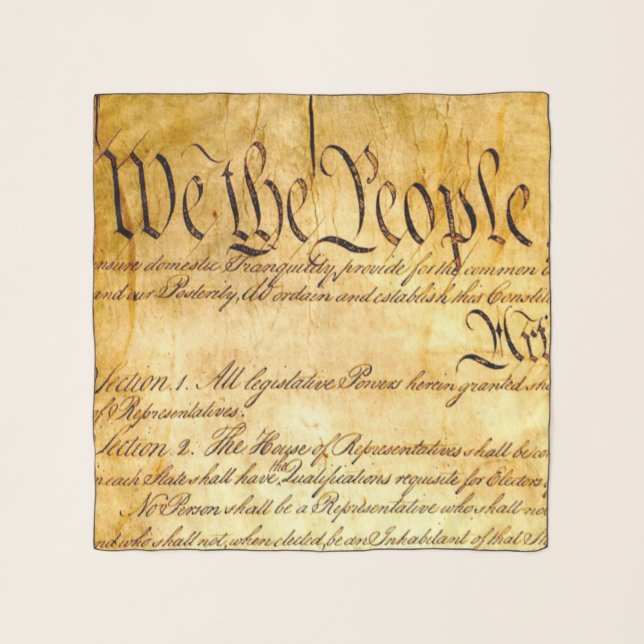 We the People
insure domestic Tranquility, provide for the common
and our Posterity, do ordain and establish this Constitu
Arti
Section. 1. All legislative Powers herein granted sha
of Representatives.
Section. 2. The House of Representatives shall be co
in each State shall have the Qualifications requisite for Electors
No Person shall be a Representative who shall not
and who shall not, when elected, be an Inhabitant of that St